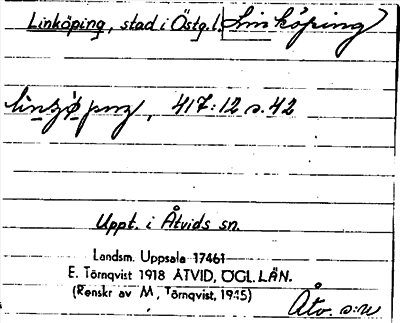 Linköping, stad i Östg.l. Linköping
417:12 s. 42
Uppt. i Åtvids sn.
Landsm. Uppsala 17461
E. Törnqvist 1918 ÅTVID, ÖGL. LÄN.
(Renskr av M. Törnqvist, 1945)
Åtv. s:n